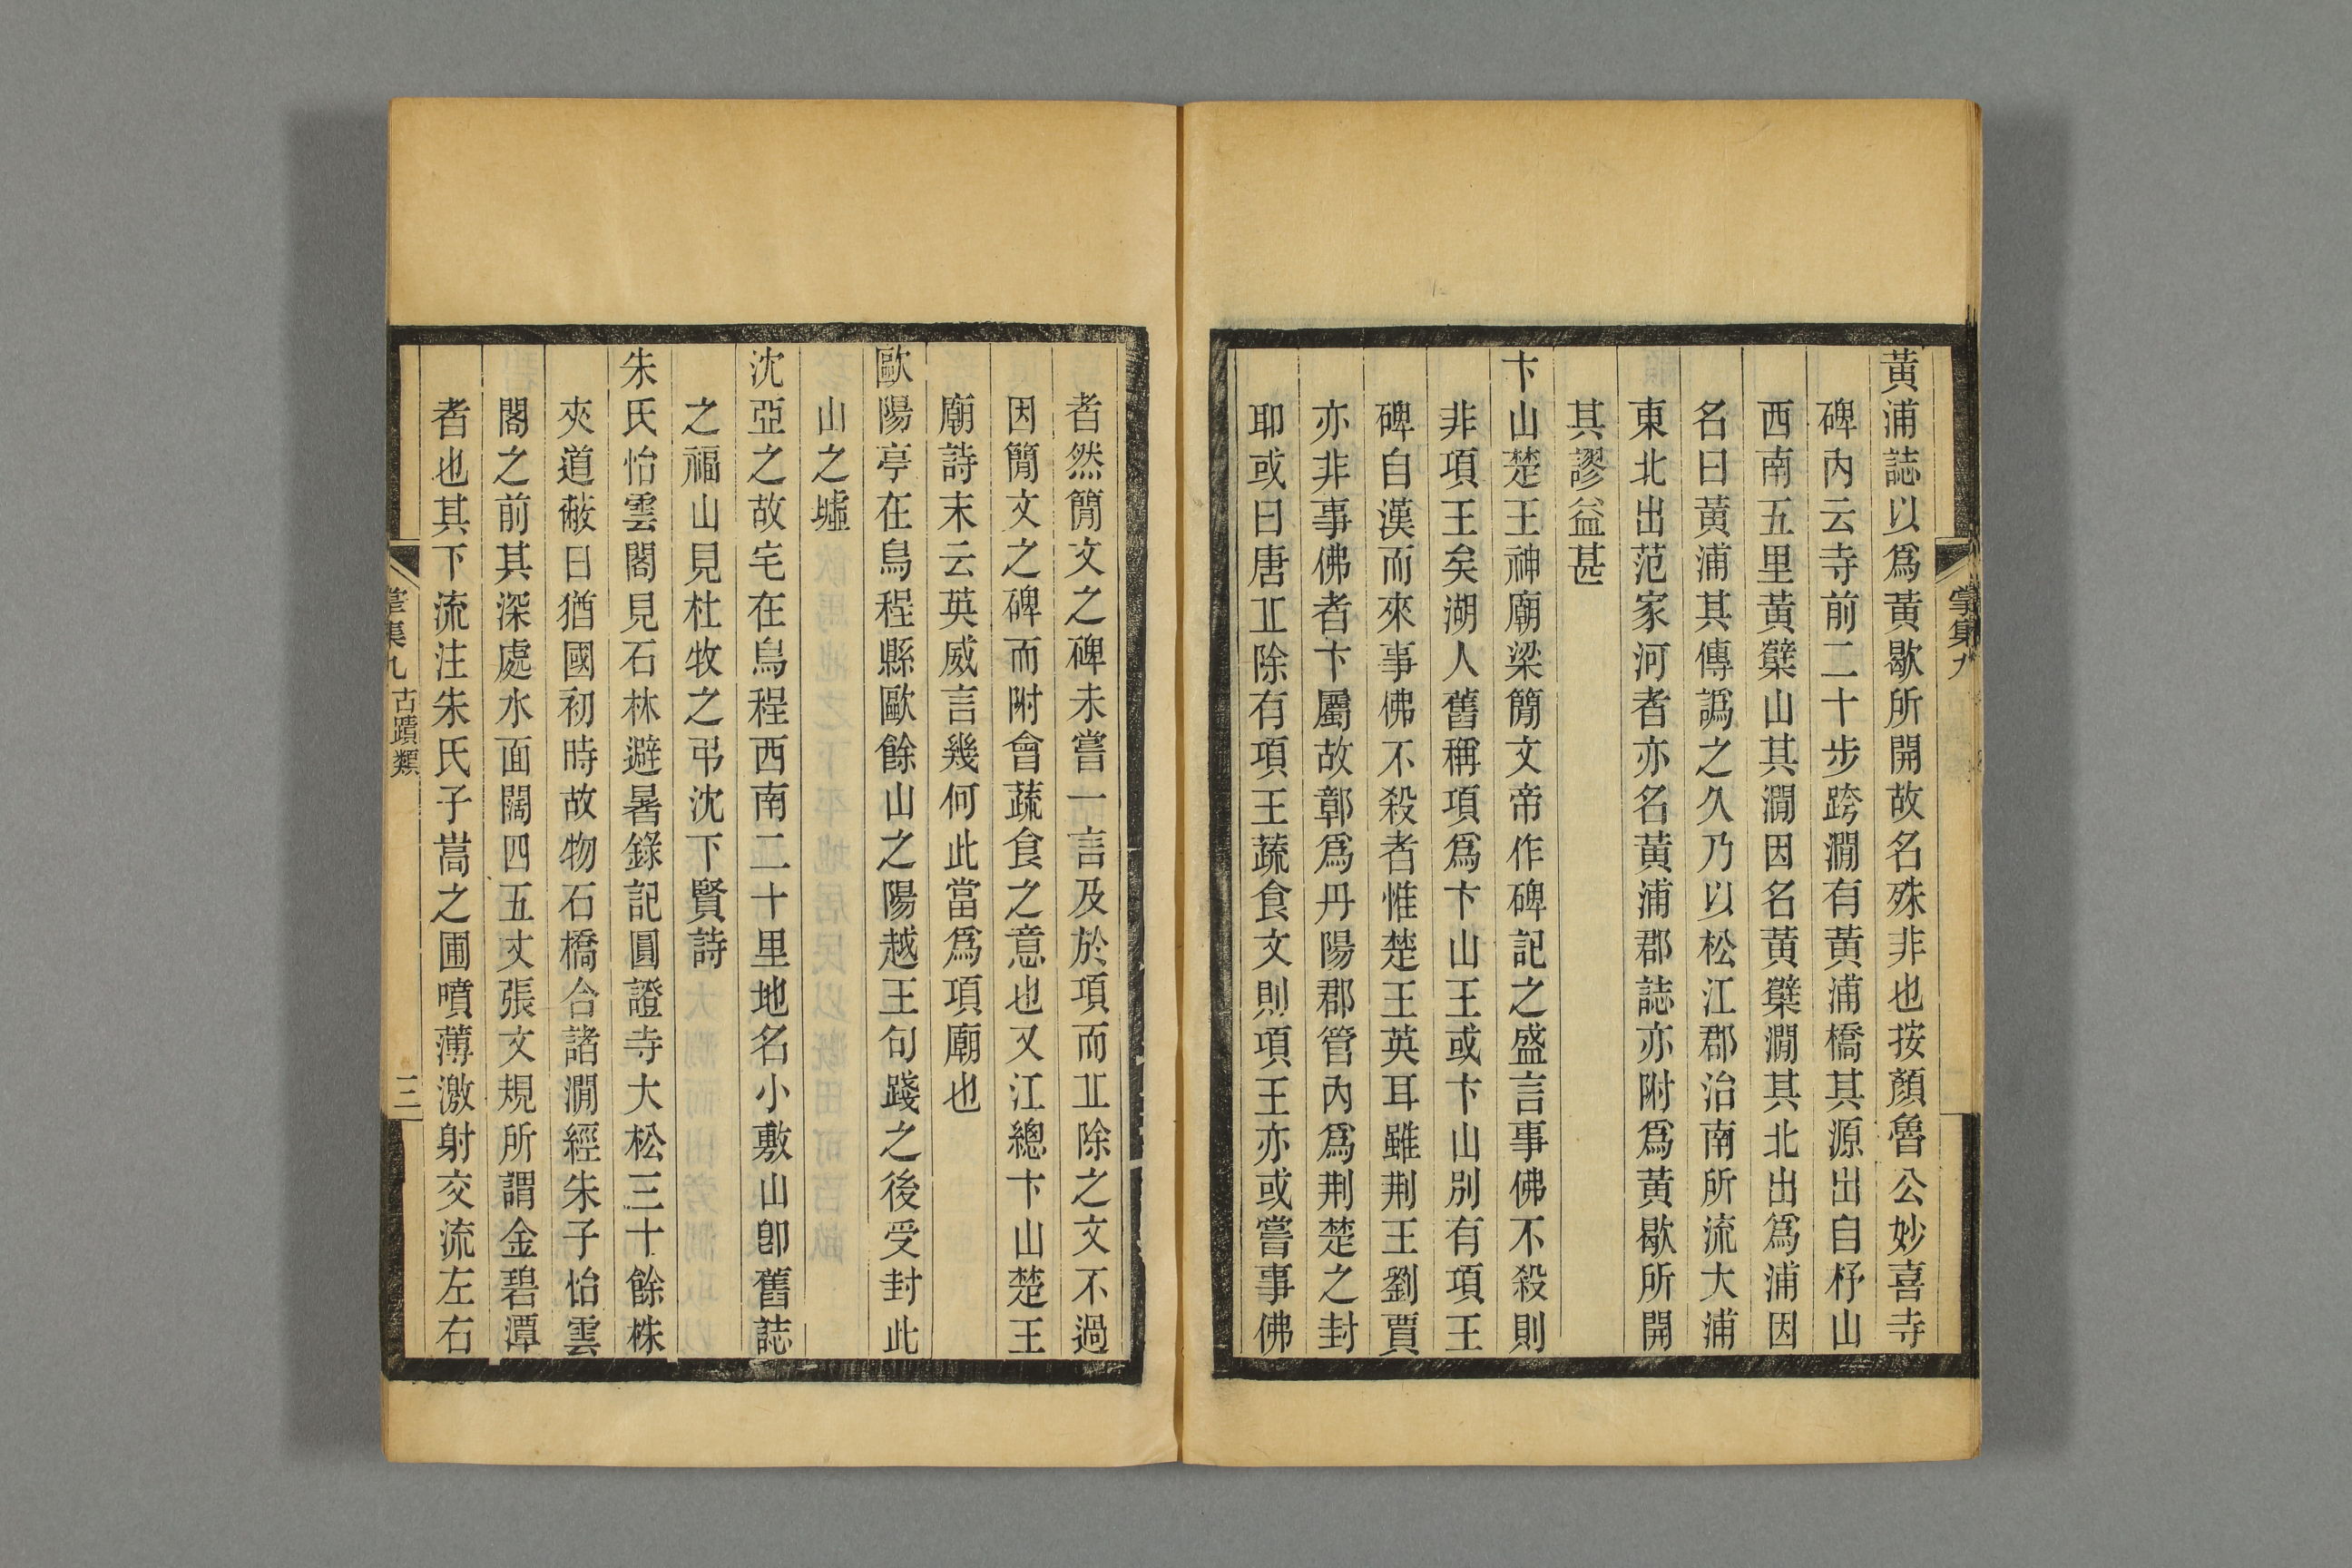 黃浦誌以爲黃歇所開故名殊非也按顏魯公妙喜寺
碑內云寺前二十步跨澗有黃浦橋其源出自杼山
西南五里黃蘗山其澗因名黃蘗澗其北出爲浦因
名曰黃浦其傳譌之久乃以松江郡治南所流大浦
東北出范家河者亦名黃浦郡誌亦附爲黃歇所開
其謬益甚
卞山楚王神廟梁簡文帝作碑記之盛言事佛不殺則
非項王矣湖人舊稱項爲卞山王或卞山別有項王
碑自漢而來事佛不殺者惟楚王英耳雖荆王劉賈
亦非事佛者卞屬故鄣爲丹陽郡管內爲荆楚之封
耶或曰唐㐀除有項王蔬食文則項王亦或嘗事佛
者然簡文之碑未嘗一言及於項而㐀除之文不過
因簡文之碑而附會蔬食之意也又江總卞山楚王
廟詩末云英威言幾何此當爲項廟也
歐陽亭在烏程縣歐餘山之陽越王句踐之後受封此
山之墟
沈亞之故宅在烏程西南二十里地名小敷山卽舊誌
之福山見杜牧之弔沈下賢詩
朱氏怡雲閣見石林避暑錄記圓證寺大松三十餘株
夾道蔽日猶國初時故物石橋合諸澗經朱子怡雲
閣之前其深處水面闊四五丈張文規所謂金碧潭
者也其下流注朱氏子嵩之圃噴薄激射交流左右
集九 古蹟類 三